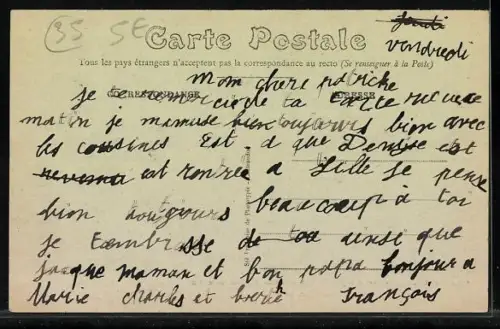 35 5E
Carte Postale
jeudi
vendredi
Tous les pays étrangers n'acceptent pas la correspondance au recto (Se renseigner à la Poste)
CORRESPONDANCE ADRESSE
mon chere patriche
je te remercie de ta carte recu ce
matin je mamuse bien toujours bien avec
les cousines Est a que Denise est
est rentrée a Lille je pense
bien toujours beaucoup à toi
je t'embrasse de ainsi que
jaque maman et bon papa bonjour a
Marie charles et berte françois